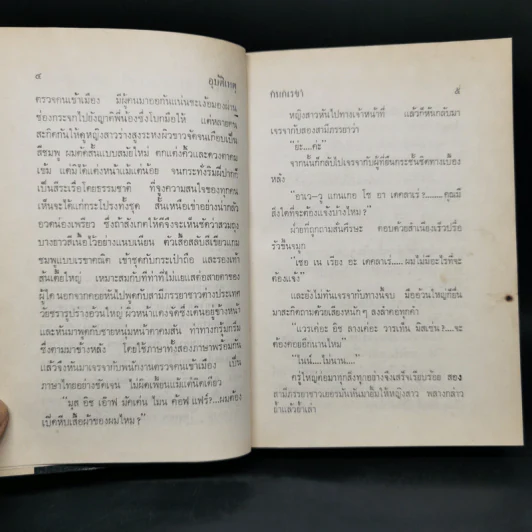 ๔ อุบัติเหตุ
ตรวจคนเข้าเมือง มีผู้คนมาออกันแน่นชะเง้อมองผ่าน
ช่องกระจกไปยังญาติพี่น้องซึ่งโบกมือไหว้ แต่หลายคนก็
สะกิดกันให้ดูหญิงสาวร่างสูงระหงผิวขาวจัดจนเกือบเป็น
สีชมพู ผมดัดสั้นแบบสมัยใหม่ ตกแต่งคิ้วและดวงตาคม
เข้ม แต่มิได้แต่งหน้าแม้แต่น้อย จนกระทั่งริมฝีปากก็
เป็นสีระเรื่อโดยธรรมชาติ ที่จูงความสนใจของทุกคน
เห็นจะได้แก่กระโปรงทั้งชุด สั้นเหนือเข่าอย่างน่ากลัว
อวดน่องเพรียว ซึ่งถ้าสังเกตให้ดีจึงจะเห็นชัดว่าสวมถุง
บางยาวสีเนื้อไว้อย่างแนบเนียน ตัวเสื้อสลับสีเขียวแกม
ชมพูแบบเรขาคณิต เข้าชุดกับกระเป๋าถือ และรองเท้า
ส้นเตี้ยใหญ่ เหมาะสมกับทีท่าที่ไม่แยแสต่อสายตาของ
ผู้ใด นอกจากคอยหันไปพูดกับสามีภรรยาชาวต่างประเทศ
วัยชรารูปร่างอ้วนใหญ่ ผิวหน้าแดงจัดซึ่งเดินอยู่ข้างหน้า
และหันมาพูดกับชายหนุ่มหน้าตาคมสัน ท่าทางกรุ้มกริ่ม
ซึ่งตามมาข้างหลัง โดยใช้ภาษาทั้งสองภาษาพร้อมกัน
แล้วจึงหันมาเจรจากับพนักงานตรวจคนเข้าเมือง เป็น
ภาษาไทยอย่างชัดเจน ไม่ผิดเพี้ยนแม้แต่นิดเดียว
“มุส อิช เอ้าฟ มัคเค่น ไมน ค้อฟ แฟร์?...ผมต้อง
เปิดหีบเสื้อผ้าของผมไหม?”
กนกเรขา ๕
หญิงสาวหันไปทางเจ้าหน้าที่ แล้วก็หันกลับมา
เจรจากับสองสามีภรรยาว่า
จากนั้นก็กลับไปเจรจากับผู้ที่ยืนกระชั้นชิดทางเบื้อง
หลัง
“อาเว-วู แกนเกอ โช อา เดคลาเร่?.......คุณมี
สิ่งใดที่จะต้องแจ้งบ้างไหม?”
ฝ่ายที่ถูกถามสั่นศีรษะ ตอบด้วยสำเนียงเร็วปรื๋อ
รัวขึ้นจมูก
“เชอ เน เรียง อะ เดคลาเร่.....ผมไม่มีอะไรที่จะ
ต้องแจ้ง”
และยังไม่ทันเจรจากับทางนี้จบ มืออ้วนใหญ่ก็ยื่น
มาสะกิดถามด้วยเสียงหนัก ๆ ลงลำคอทุกคำ
“แวรเด้อะ อิช ลางเด้อะ วารเท้น มัสเซน?....จะ
ต้องคอยอีกนานไหม”
“ไนน์....ไม่นาน....”
ครู่ใหญ่ต่อมาทุกสิ่งทุกอย่างจึงเสร็จเรียบร้อย สอง
สามีภรรยาชาวเยอรมันหันมายิ้มให้หญิงสาว พลางกล่าว
ย้ำแล้วย้ำเล่า